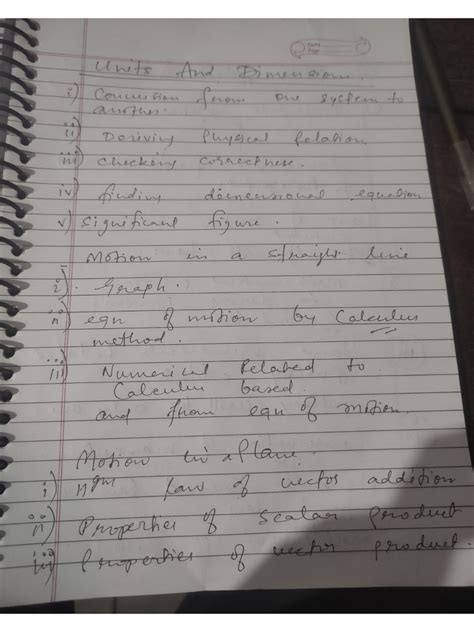 Units And Dimensions.
i) Conversion from one system to
another.
ii) Deriving Physical Relation
iii) Checking correctness.
iv) finding dimensional equation
v) Significant figure.
Motion in a straight line
i). Graph.
ii) eqn of motion by Calculus
method.
iii) Numerical Related to
Calculus based
and from eqn of motion.
Motion in a Plane.
i) law of vector addition
ii) Properties of scalar product
iii) Properties of vector product.